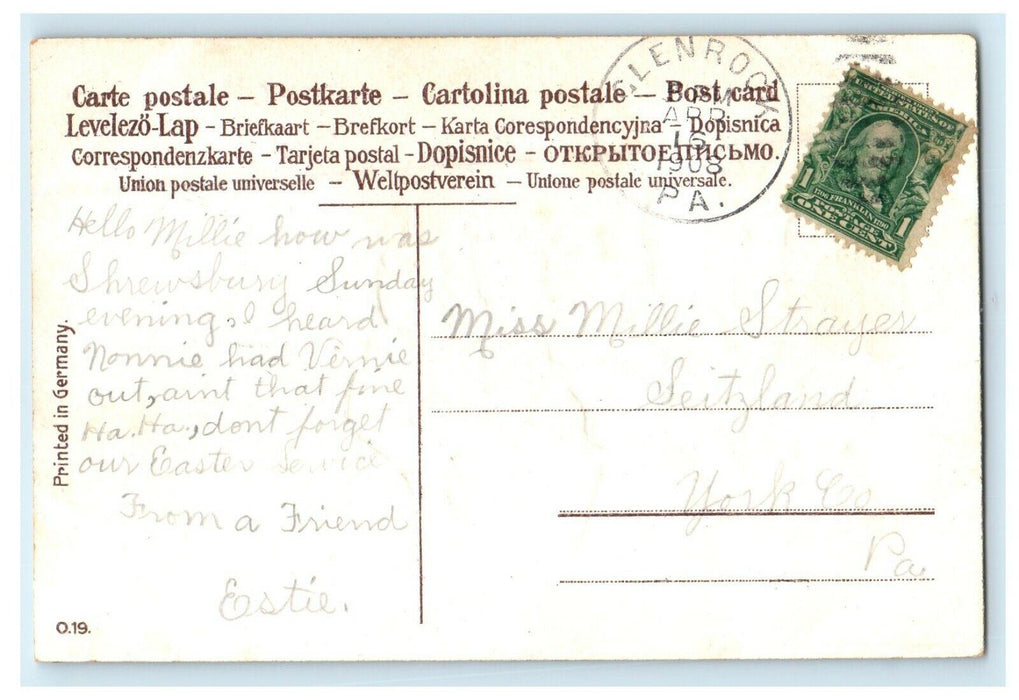 Carte postale – Postkarte – Cartolina postale – Post card
Levelező-Lap – Briefkaart – Brefkort – Karta Corespondencyjna – Dopisnica
Correspondenzkarte – Tarjeta postal – Dopisnice – ОТКРЫТОЕ ПИСЬМО.
Union postale universelle – Weltpostverein – Unione postale universale.
GLENROCK
APR
16
1908
PA.
UNITED STATES OF AMERICA
1706 FRANKLIN 1790
POSTAGE
1 ONE CENT 1
Hello Millie how was
Shrewsbury Sunday
evening, I heard
Nonnie had Vernie
out, aint that fine
Ha. Ha., dont forget
our Easter Service
From a Friend
Estie.
Miss Millie Strayer
Seitzland
York Co
Pa.
Printed in Germany.
O.19.